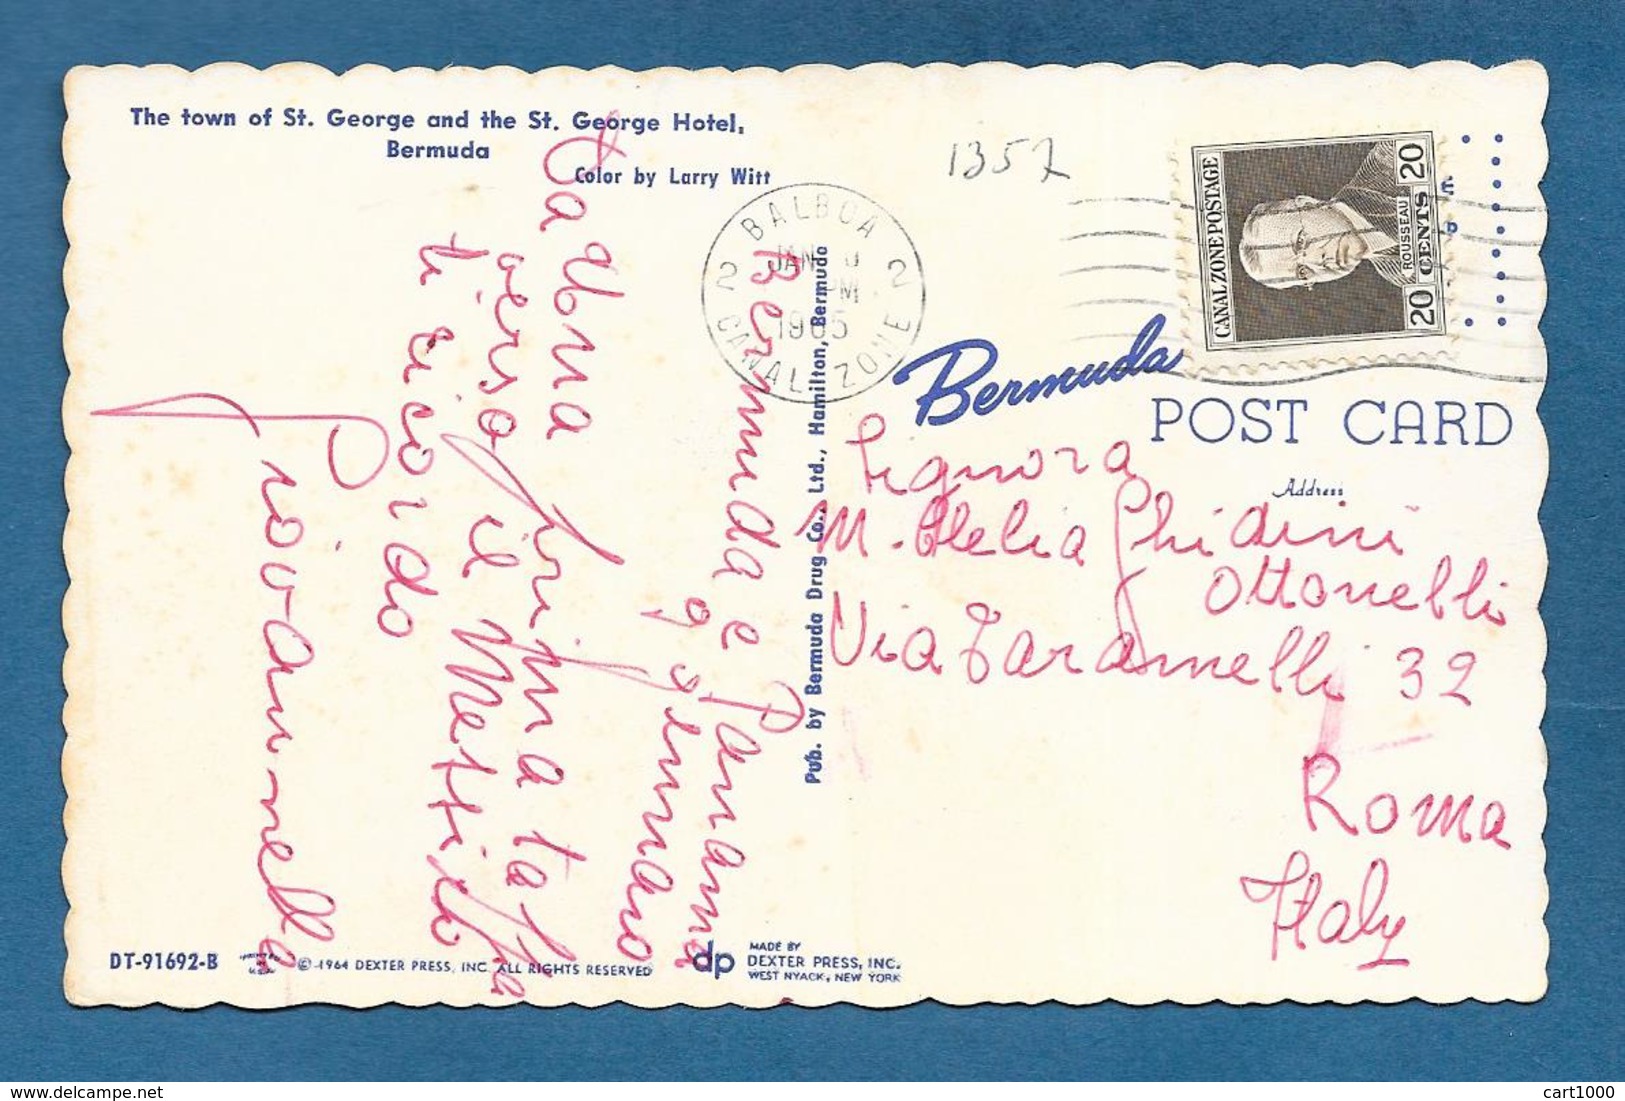 The town of St. George and the St. George Hotel,
Bermuda
Color by Larry Witt
1357
BALBOA
JAN
PM
1965
2 2
CANAL ZONE
CANAL ZONE POSTAGE
ROUSSEAU
20 CENTS 20
Bermuda
POST CARD
Address
Signora
M. Clelia Ghidini
Ottonelli
Via Taramelli 32
Roma
Italy
Bermuda e Panama
9 gennaio
Da una prima tappa
verso il Messico
ti ricordo
Giovannella
Pub. by Bermuda Drug Co., Ltd., Hamilton, Bermuda
DT-91692-B
© 1964 DEXTER PRESS, INC. ALL RIGHTS RESERVED
dp
MADE BY
DEXTER PRESS, INC.
WEST NYACK, NEW YORK
cartes-postales-delcampe.net
cart1000